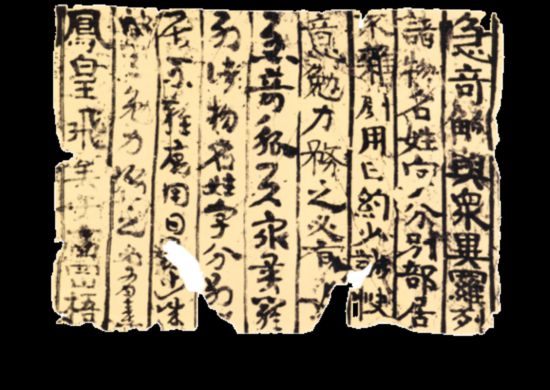 急奇觚與衆異羅列
諸物名姓字分別部居
不雜廁用日約少誠快
意勉力務之必有
急奇觚與衆異羅
列諸物名姓字分別
居不雜廁用日
意勉力務之必有憙
鳳皇飛矣于高岡梧